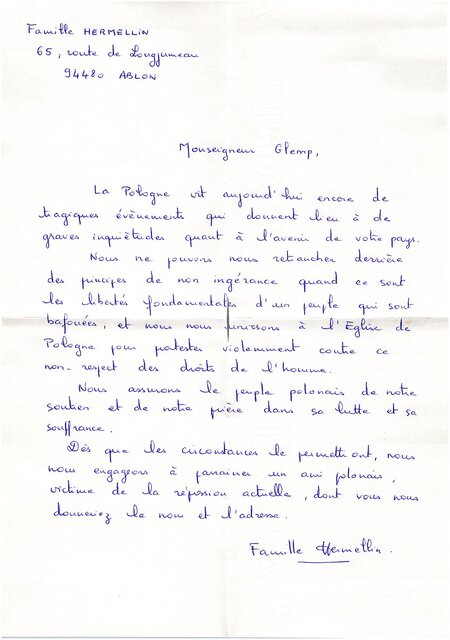 Famille HERMELLIN
65, route de Longjumeau
94480 ABLON
Monseigneur Glemp,
La Pologne vit aujourd'hui encore de
tragiques évènements qui donnent lieu à de
graves inquiétudes quant à l'avenir de votre pays.
Nous ne pouvons nous retrancher derrière
des principes de non ingérance quand ce sont
les libertés fondamentales d'un peuple qui sont
bafouées, et nous nous unissons à l'Eglise de
Pologne pour protester violemment contre ce
non-respect des droits de l'homme.
Nous assurons le peuple polonais de notre
soutien et de notre prière dans sa lutte et sa
souffrance.
Dès que les circonstances le permettront, nous
nous engageons à parrainer un ami polonais,
victime de la répression actuelle, dont vous nous
donneriez le nom et l'adresse.
Famille Hermellin.